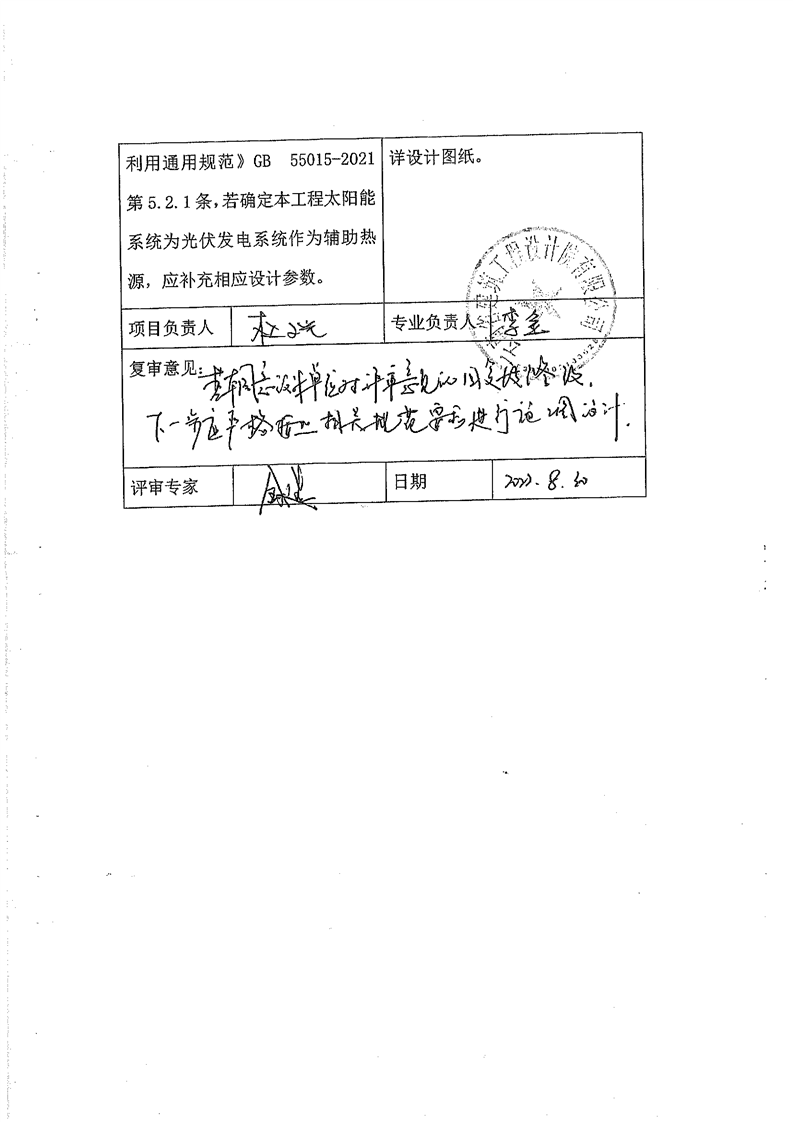 利用通用规范》GB 55015-2021
第5.2.1条，若确定本工程太阳能
系统为光伏发电系统作为辅助热
源，应补充相应设计参数。
详设计图纸。
建筑工程设计院有限公司
项目负责人
专业负责人 李金
复审意见：
基本同意设计单位对评审意见的回复及修改，
下一步应严格按照相关规范要求进行施工图设计.
评审专家
日期
8.30